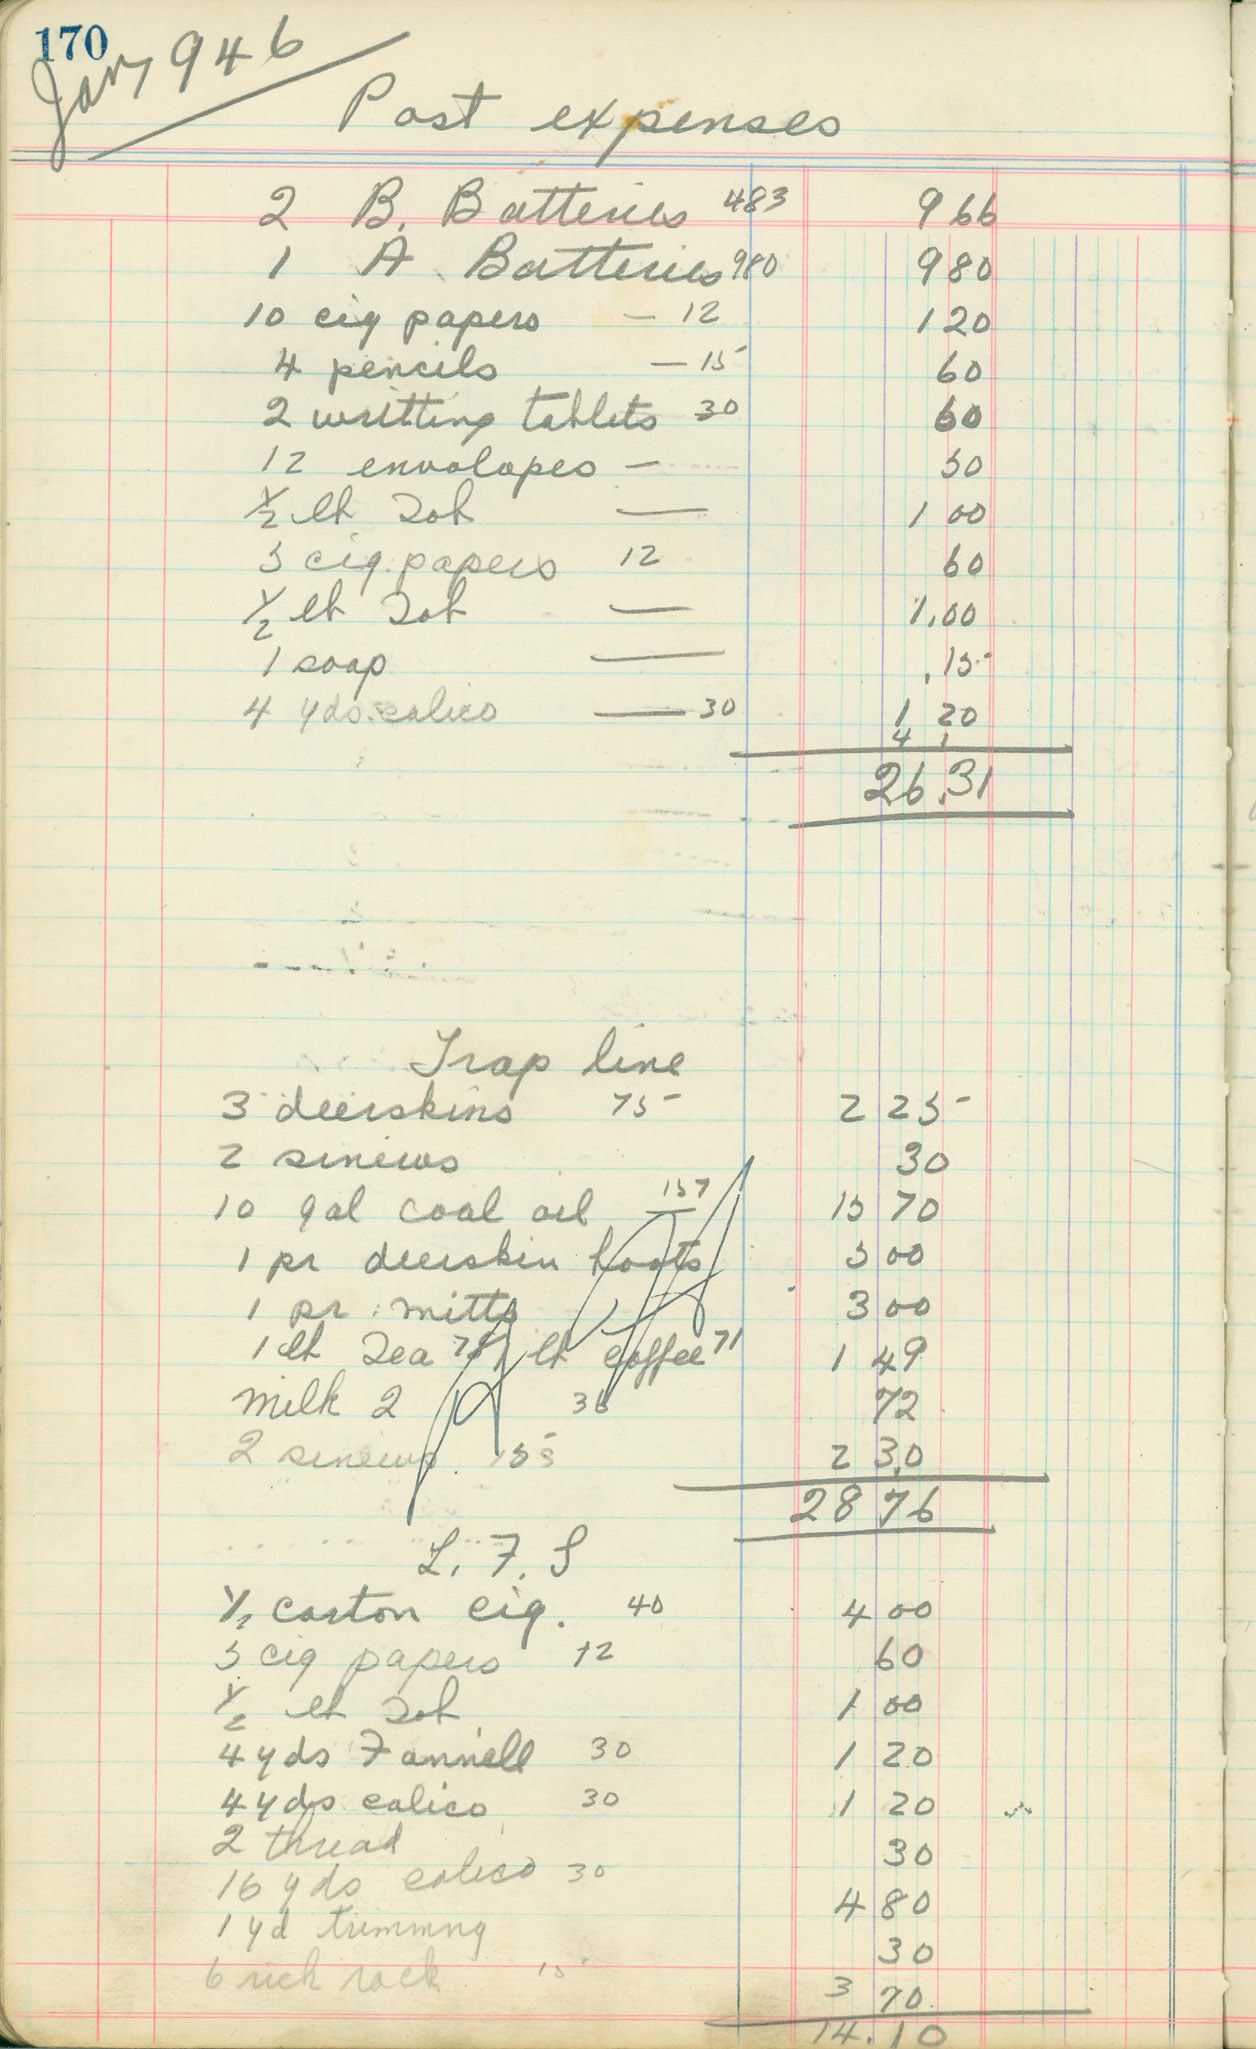 170
Jan, 946
Post expenses
2 B. Batteries 483 9 66
1 A Batteries 980 9 80
10 cig papers — 12 1 20
4 pencils — 15 60
2 writting tablets 30 60
12 envolopes — 50
½ lb Tob — 1 00
5 cig. papers 12 60
½ lb Tob — 1.00
1 soap — .15
4 yds calico — 30 1 20
4 1
26.31
Trap line
3 deerskins 75 2 25
2 sinews 30
10 gal coal oil 157 15 70
1 pr deerskin boots 5 00
1 pr mitts 3 00
1 lb Tea 78 1 lb coffee 71 1 49
milk 2 36 72
2 sinews 15 30
2
28 76
L. F. S
½ carton cig. 40 4 00
5 cig papers 12 60
½ lb Tob 1 00
4 yds Fannell 30 1 20
4 yds calico 30 1 20
2 thread 30
16 yds calico 30 4 80
1 yd trimmng 30
6 rick rack 15 70
3
14.10